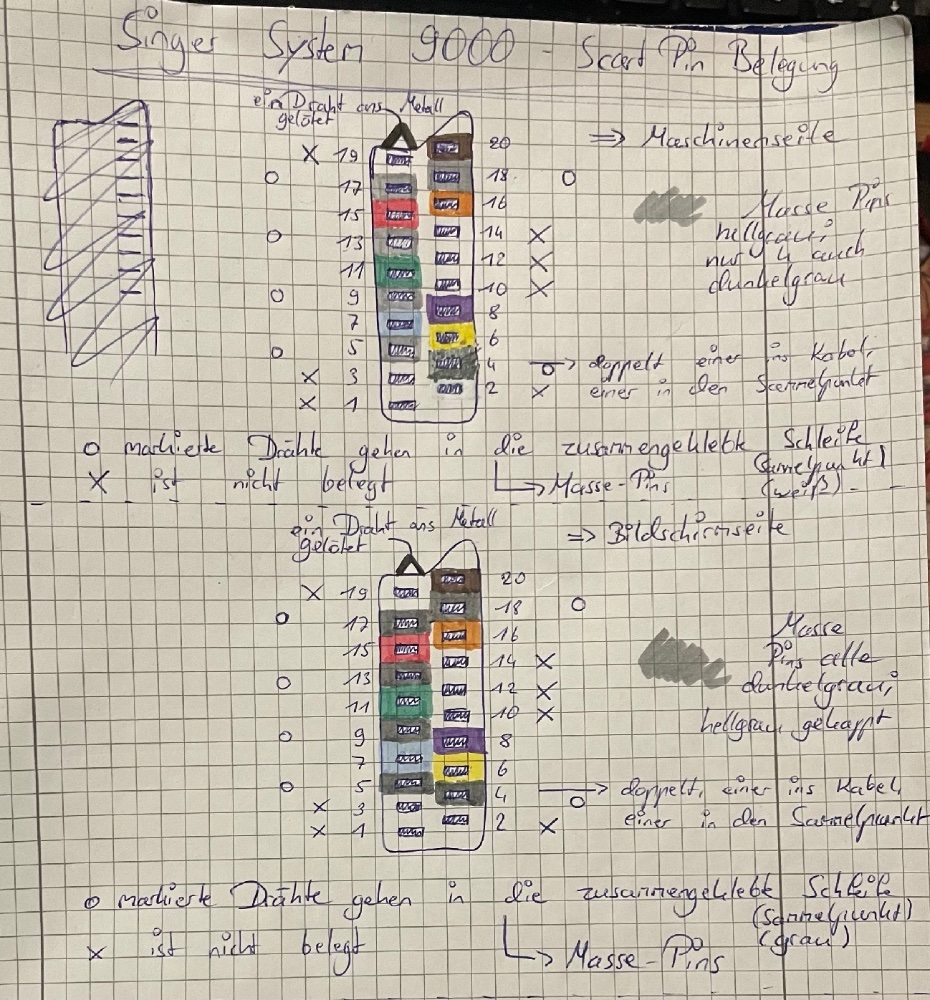 Singer System 9000 - Scart Pin Belegung
ein Draht ans Metall
gelötet
=> Maschinenseite
X 19
20
O 17
18 O
15
16
O 13
14 X
11
12 X
O 9
10 X
7
8
O 5
6
X 3
4 O-> doppelt einer ins Kabel,
X 1
2 X einer in den Sammelpunkt
Masse Pins
hellgrau,
nur 4 auch
dunkelgrau
O markierte Drähte gehen in die zusammengeklebte Schleife
(Samelpunkt)
X ist nicht belegt
-> Masse-Pins
(weiß)
ein Draht ans Metall
gelötet
=> Bildschirmseite
X 19
20
O 17
18 O
15
16
O 13
14 X
11
12 X
O 9
10 X
7
8
O 5
6
X 3
4 O-> doppelt, einer ins Kabel,
X 1
2 X einer in den Sammelpunkt
Masse
Pins alle
dunkelgrau,
hellgrau gekappt
O markierte Drähte gehen in die zusammengeklebte Schleife
(Sammelpunkt)
X ist nicht belegt
(grau)
-> Masse-Pins